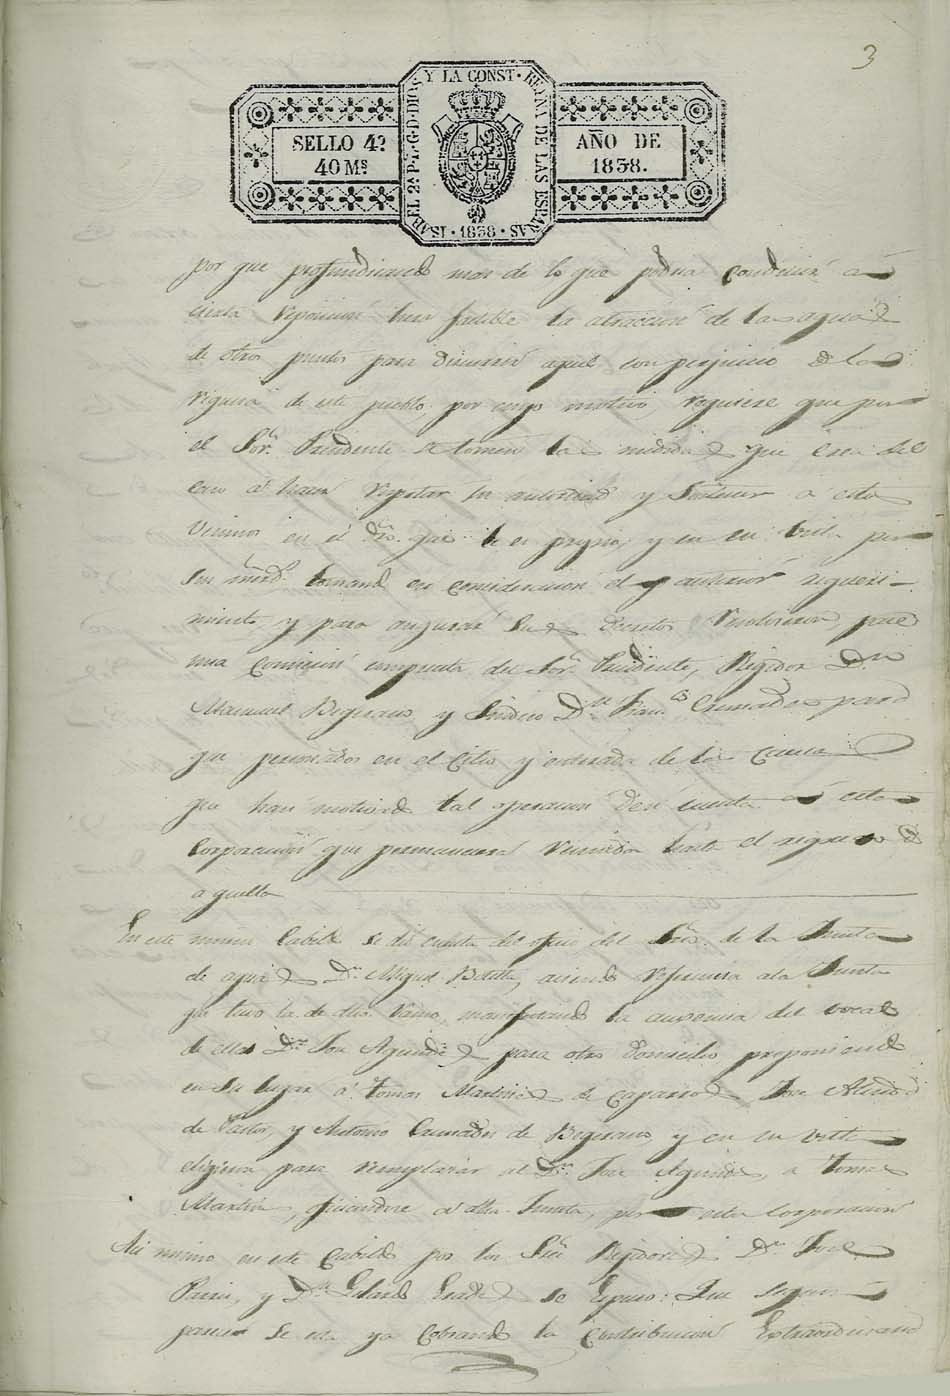 3
SELLO 4º
40 Mˢ
ISABEL 2ª P. L. G. D. DIOS Y LA CONST. REYNA DE LAS ESPAÑAS · 1838 ·
AÑO DE
1838.
por que profundizando mas de lo que podria conducir á
cierta reposicion hera factible la atraccion de las aguas
de otros puntos para discurrir aquel con perjuicio de los
de este pueblo, por cuyo motivo, requiere que por
el Sor. Presidente se tomen las medidas que crea del
caso á hacer respetar su autoridad y sostener a estos
Vecinos en el dro. que le es propio, y en su vista por
sus mrds. tomando en consideracion el anterior requeri-
miento y para asegurar sus decretos pase
una Comision compuesta del Sor. Presidente, Regidor Dn.
Manuel Begerano y Sindico Dn. Franco. Cumados para
que personados en el Citio y enterados de la Causa
que han motivado tal operacion den cuenta á esta
Corporacion que permanecerá reunida hasta el regreso de
aquella
En este mismo Cabildo se dió cuenta del oficio del Srio. de la Junta
de aguas Dn. Miguel Botella, referencia a la Junta
que tuvo la de dho. ramo, manifestando la ausencia del vocal
de ellas Dn. Jose para otro domicilio proponiendo
en su lugar á Tomas Martinez de Caparros Jose
de Castro, y Antonio Cumados de Begerano, y en su vista
eligieron para remplazar al Dn. Jose a Tomas
Martinez, oficiandose á dha. Junta, por esta Corporacion
Asi mismo en este Cabildo por los Sres. Regidores Dn. Jose
y Dn. se Espuso: Que segun
parece se está ya Cobrando la Contribucion Extraordinaria